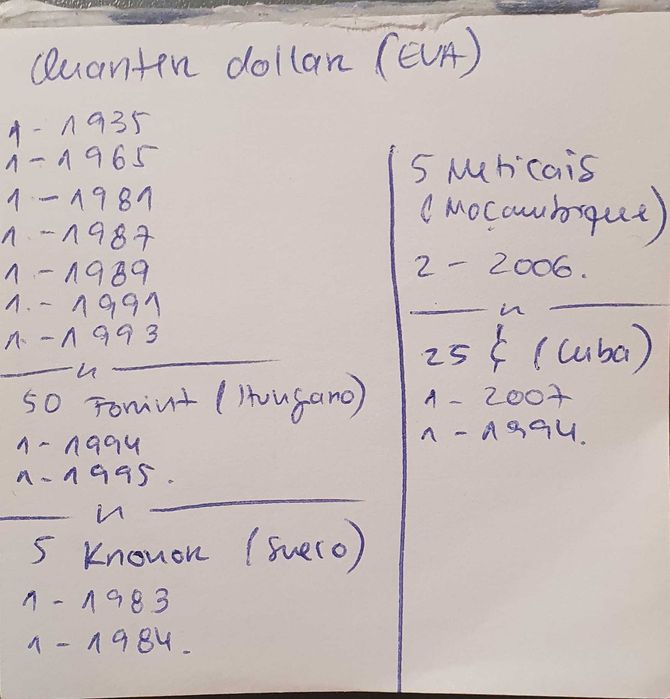 Quarter dollar (EUA)
1 - 1935
1 - 1965
1 - 1981
1 - 1987
1 - 1989
1 - 1991
1 - 1993
50 Forint (Hungaro)
1 - 1994
1 - 1995.
5 Kronor (Sueco)
1 - 1983
1 - 1984.
5 Meticais
(Moçambique)
2 - 2006.
25 ¢ (Cuba)
1 - 2007
1 - 1994.